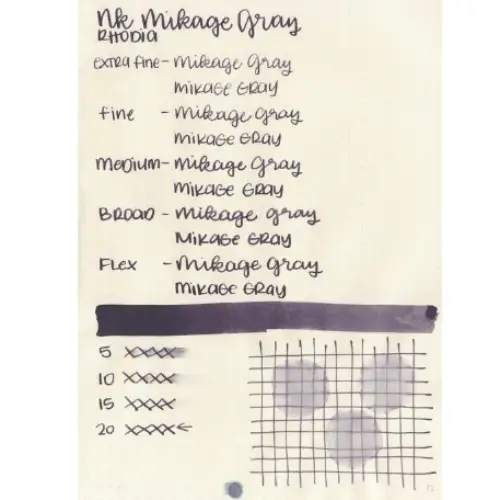 NK Mikage Gray
RHODIA
Extra Fine - Mikage Gray
Mikage Gray
Fine - Mikage Gray
Mikage Gray
Medium - Mikage Gray
Mikage Gray
Broad - Mikage Gray
Mikage Gray
Flex - Mikage Gray
Mikage Gray
5 xxxx
10 xxxx
15 xxxx
20 xxxx←